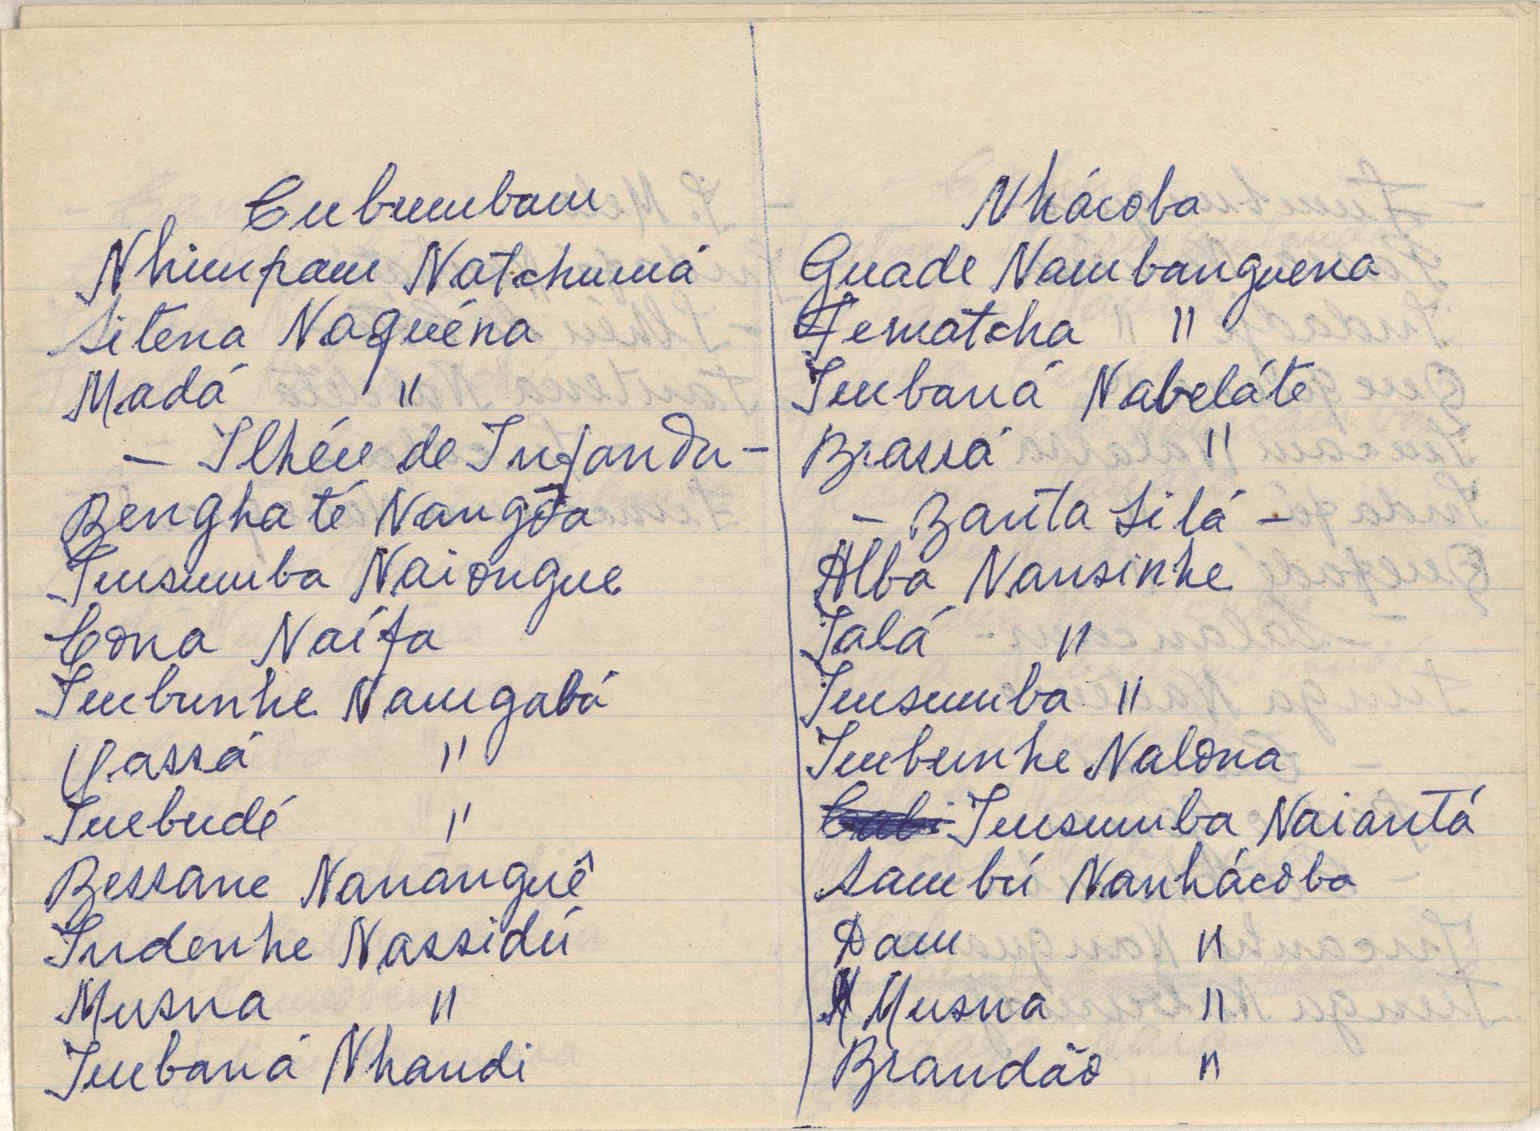 Cubumbam
Nhimpam Natchumá
Sitena Naquéna
Madá "
- Ilhéu de Infanda -
Benghaté Nangoa
Imsumba Naiongue
Cona Naífa
Imbunhe Namgabá
Yassá "
Imbudé "
Bessane Nananguê
Indenhe Nassidú
Musna "
Imbaná Nhandi
Nhácoba
Guade Nambanguena
Fematcha "
Imbaná Nabeláte
Brassá "
- Banta Silá -
Alba Nansinhe
Ialá "
Imsumba "
Imbunhe Nalona
Imsumba Naiantá
Sambú Nanhácoba
Dam "
Musna "
Brandão "